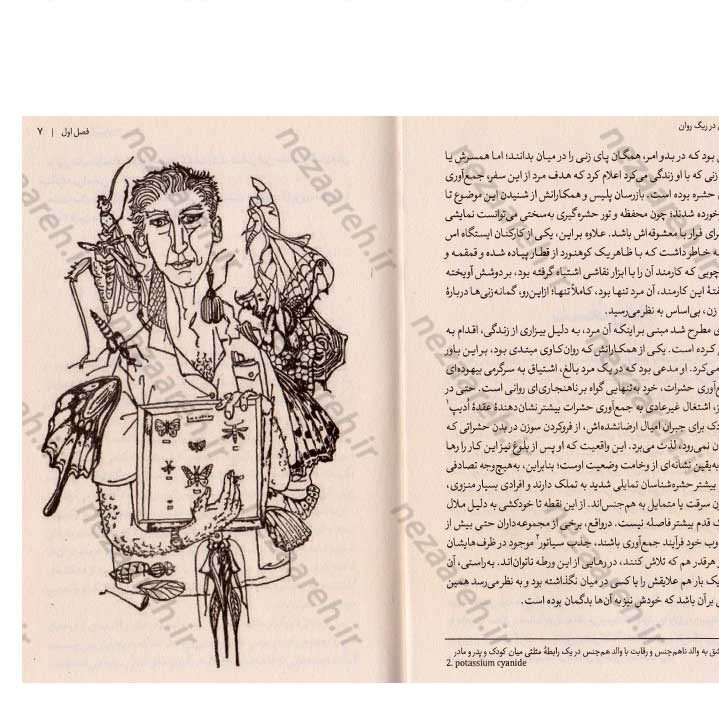 فصل اول | ۷
در ریگ روان
بود که در بدو امر، همگان پای زنی را در میان بدانند؛ اما همسرش یا
زنی که با او زندگی می‌کرد اعلام کرد که هدف مرد از این سفر، جمع‌آوری
حشره بوده است. بازرسان پلیس و همکارانش از شنیدن این موضوع تا
خورده شدند؛ چون محفظه و تور حشره‌گیری به‌سختی می‌توانست نمایشی
برای فرار با معشوقه‌اش باشد. علاوه بر این، یکی از کارکنان ایستگاه اس
به خاطر داشت که با ظاهر یک کوهنورد از قطار پیاده شده و قمقمه و
چوبی که کارمند آن را با ابزار نقاشی اشتباه گرفته بود، بر دوشش آویخته
گفتهٔ این کارمند، آن مرد تنها بود، کاملاً تنها؛ ازاین‌رو، گمانه‌زنی‌ها دربارهٔ
زن، بی‌اساس به نظر می‌رسید.
مطرح شد مبنی بر اینکه آن مرد، به دلیل بیزاری از زندگی، اقدام به
کرده است. یکی از همکارانش که روان‌کاوی مبتدی بود، بر این باور
می‌کرد. او مدعی بود که در یک مرد بالغ، اشتیاق به سرگرمی بیهوده‌ای
جمع‌آوری حشرات، خود به‌تنهایی گواه بر ناهنجاری‌ای روانی است. حتی در
اشتغال غیرعادی به جمع‌آوری حشرات بیشتر نشان‌دهندهٔ عقدهٔ اُدیپ
برای جبران امیال ارضانشده‌اش، از فروکردن سوزن در بدن حشراتی که
نمی‌رود، لذت می‌برد. این واقعیت که او پس از بلوغ نیز این کار را رها
به‌یقین نشانه‌ای از وخامت وضعیت اوست؛ بنابراین، به‌هیچ‌وجه تصادفی
بیشتر حشره‌شناسان تمایلی شدید به تملک دارند و افرادی بسیار منزوی،
سرقت یا متمایل به هم‌جنس‌اند. از این نقطه تا خودکشی به دلیل ملال
قدم بیشتر فاصله نیست. درواقع، برخی از مجموعه‌داران حتی بیش از
خود فرآیند جمع‌آوری باشند، جذب سیانور۲ موجود در ظرف‌هایشان
هرقدر هم که تلاش کنند، در رهایی از این ورطه ناتوان‌اند. به‌راستی، آن
یک بار هم علایقش را با کسی در میان نگذاشته بود و به نظر می‌رسد همین
بر آن باشد که خودش نیز به آن‌ها بدگمان بوده است.
به والد ناهم‌جنس و رقابت با والد هم‌جنس در یک رابطهٔ مثلثی میان کودک و پدر و مادر
2. potassium cyanide
nezaareh.ir